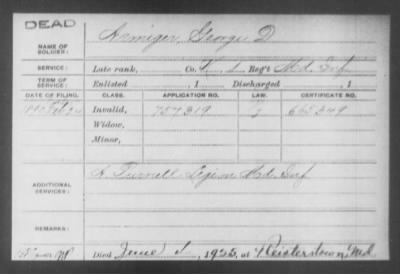 DEAD
NAME OF SOLDIER: Armiger, George D.
SERVICE: Late rank, Co. Reg't Md. Inf
TERM OF SERVICE: Enlisted , 1 Discharged , 1
DATE OF FILING. CLASS. APPLICATION NO. LAW. CERTIFICATE NO.
1890 Invalid, 757319
Widow,
Minor,
ADDITIONAL SERVICES: Purnell Legion Md. Inf
REMARKS:
Died June , 1925, at Reisterstown, Md